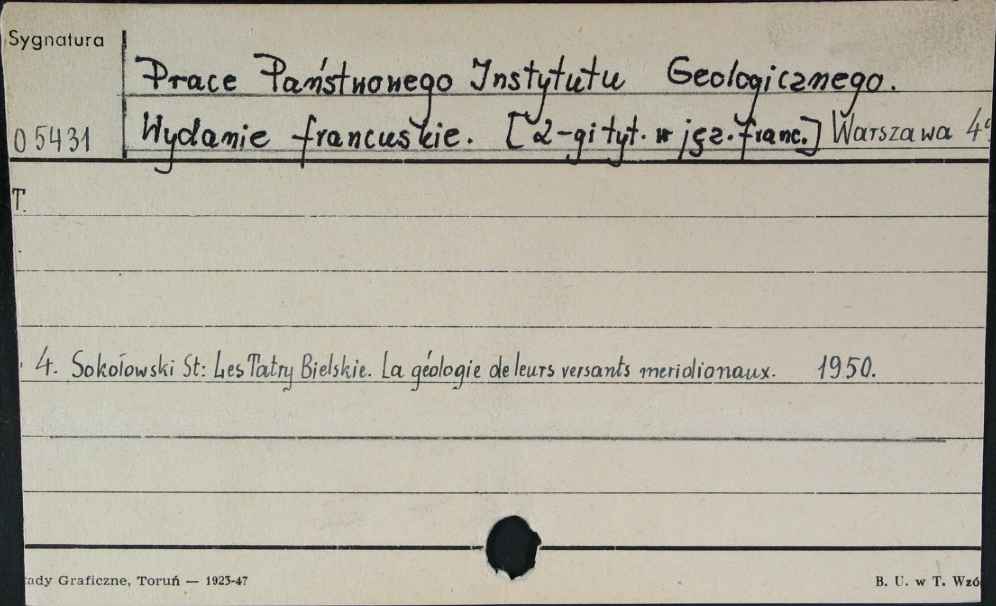 Sygnatura
Prace Państwowego Instytutu Geologicznego.
O 5431
Wydanie francuskie. [2-gi tyt. w jęz. franc.] Warszawa 4°
T.
4. Sokołowski St: Les Tatry Bielskie. La géologie de leurs versants meridionaux. 1950.
ady Graficzne, Toruń — 1923-47
B. U. w T. Wzó